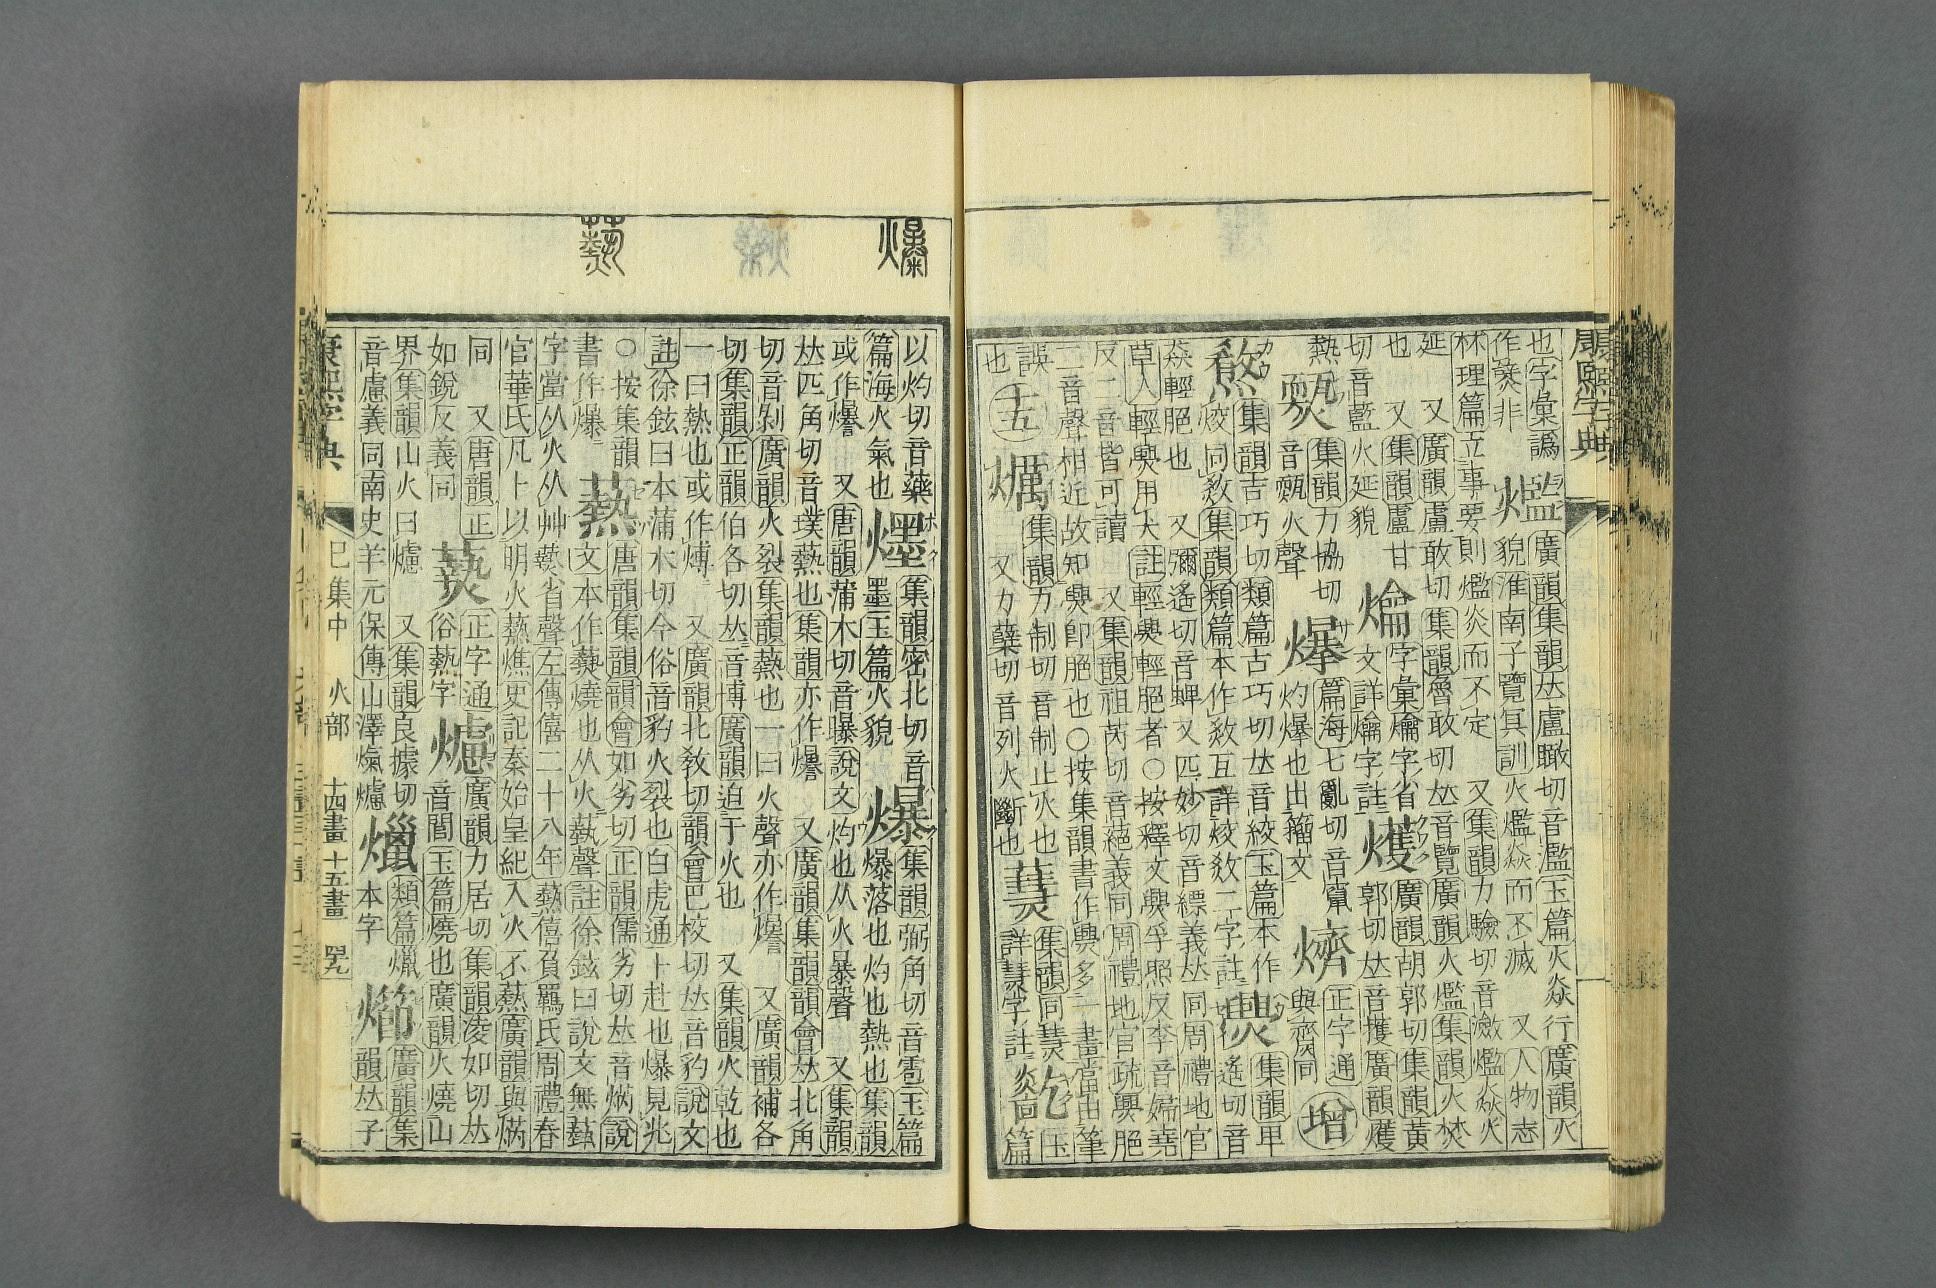 康熙字典
也字彙譌
作爒非
爁
廣韻集韻𠀤盧瞰切音濫玉篇火焱行廣韻火
貌淮南子覽冥訓火爁焱而不滅 又人物志
林理篇立事要則爁炎而不定 又集韻力驗切音瀲爁焱火
延 又廣韻盧敢切集韻魯敢切𠀤音覽廣韻火爁集韻火焚
也 又集韻盧甘
切音藍火延貌
字彙爚字省
文詳爚字註
㸌
廣韻胡郭切集韻黃
郭切𠀤音擭廣韻㸌
熱
集韻力協切
音甄火聲
篇海七亂切音竄
灼爆也出籀文
正字通
與齌同
增
集韻吉巧切類篇古巧切𠀤音絞玉篇本作
烄同敎集韻類篇本作敎互詳烄敎二字註
㷭
集韻甲遙切音
猋輕脃也 又彌遙切音蜱又匹妙切音縹義𠀤同周禮地官
草人輕㷭用犬註輕㷭輕脃者○按釋文㷭孚照反李音婦堯
反二音皆可讀 又集韻祖芮切音蕝義同周禮地官疏㷭脃
二音聲相近故知㷭卽脃也○按集韻書作㷭多一畫當由筆
誤
也
十五
爄
集韻力制切音制止火也
又力櫱切音列火斷也
集韻同熭
詳熭字註
玉
篇
爆
爇
以灼切音藥
篇海火氣也
爅
集韻密北切音
墨玉篇火貌
爆
集韻弼角切音雹玉篇
爆落也灼也熱也集韻
或作㸁 又唐韻蒲木切音曝說文灼也从火暴聲 又集韻
𠀤匹角切音璞熱也集韻亦作㸁 又廣韻集韻韻會𠀤北角
切音剝廣韻火裂集韻熱也一曰火聲亦作㸁 又廣韻補各
切集韻正韻伯各切𠀤音博廣韻迫于火也 又集韻火乾也
一曰熱也或作煿 又廣韻北敎切韻會巴校切𠀤音豹說文
註徐鉉曰本蒲木切今俗音豹火裂也白虎通卜赴也爆見兆
○按集韻
書作㸁
爇
唐韻集韻韻會如劣切正韻儒劣切𠀤音焫說
文本作爇燒也从火蓺聲註徐鉉曰說文無蓺
字當从火从艸爇省聲左傳僖二十八年爇僖負羈氏周禮春
官華氏凡卜以明火爇燋史記秦始皇紀入火不爇廣韻與焫
同 又唐韻正
如銳反義同
正字通
俗爇字
爈
廣韻力居切集韻凌如切𠀤
音閭玉篇燒也廣韻火燒山
界集韻山火曰爈 又集韻良據切
音慮義同南史羊元保傳山澤爈爈
類篇
本字
廣韻集
韻𠀤子
康熙字典
巳集中 火部 十四畫 十五畫